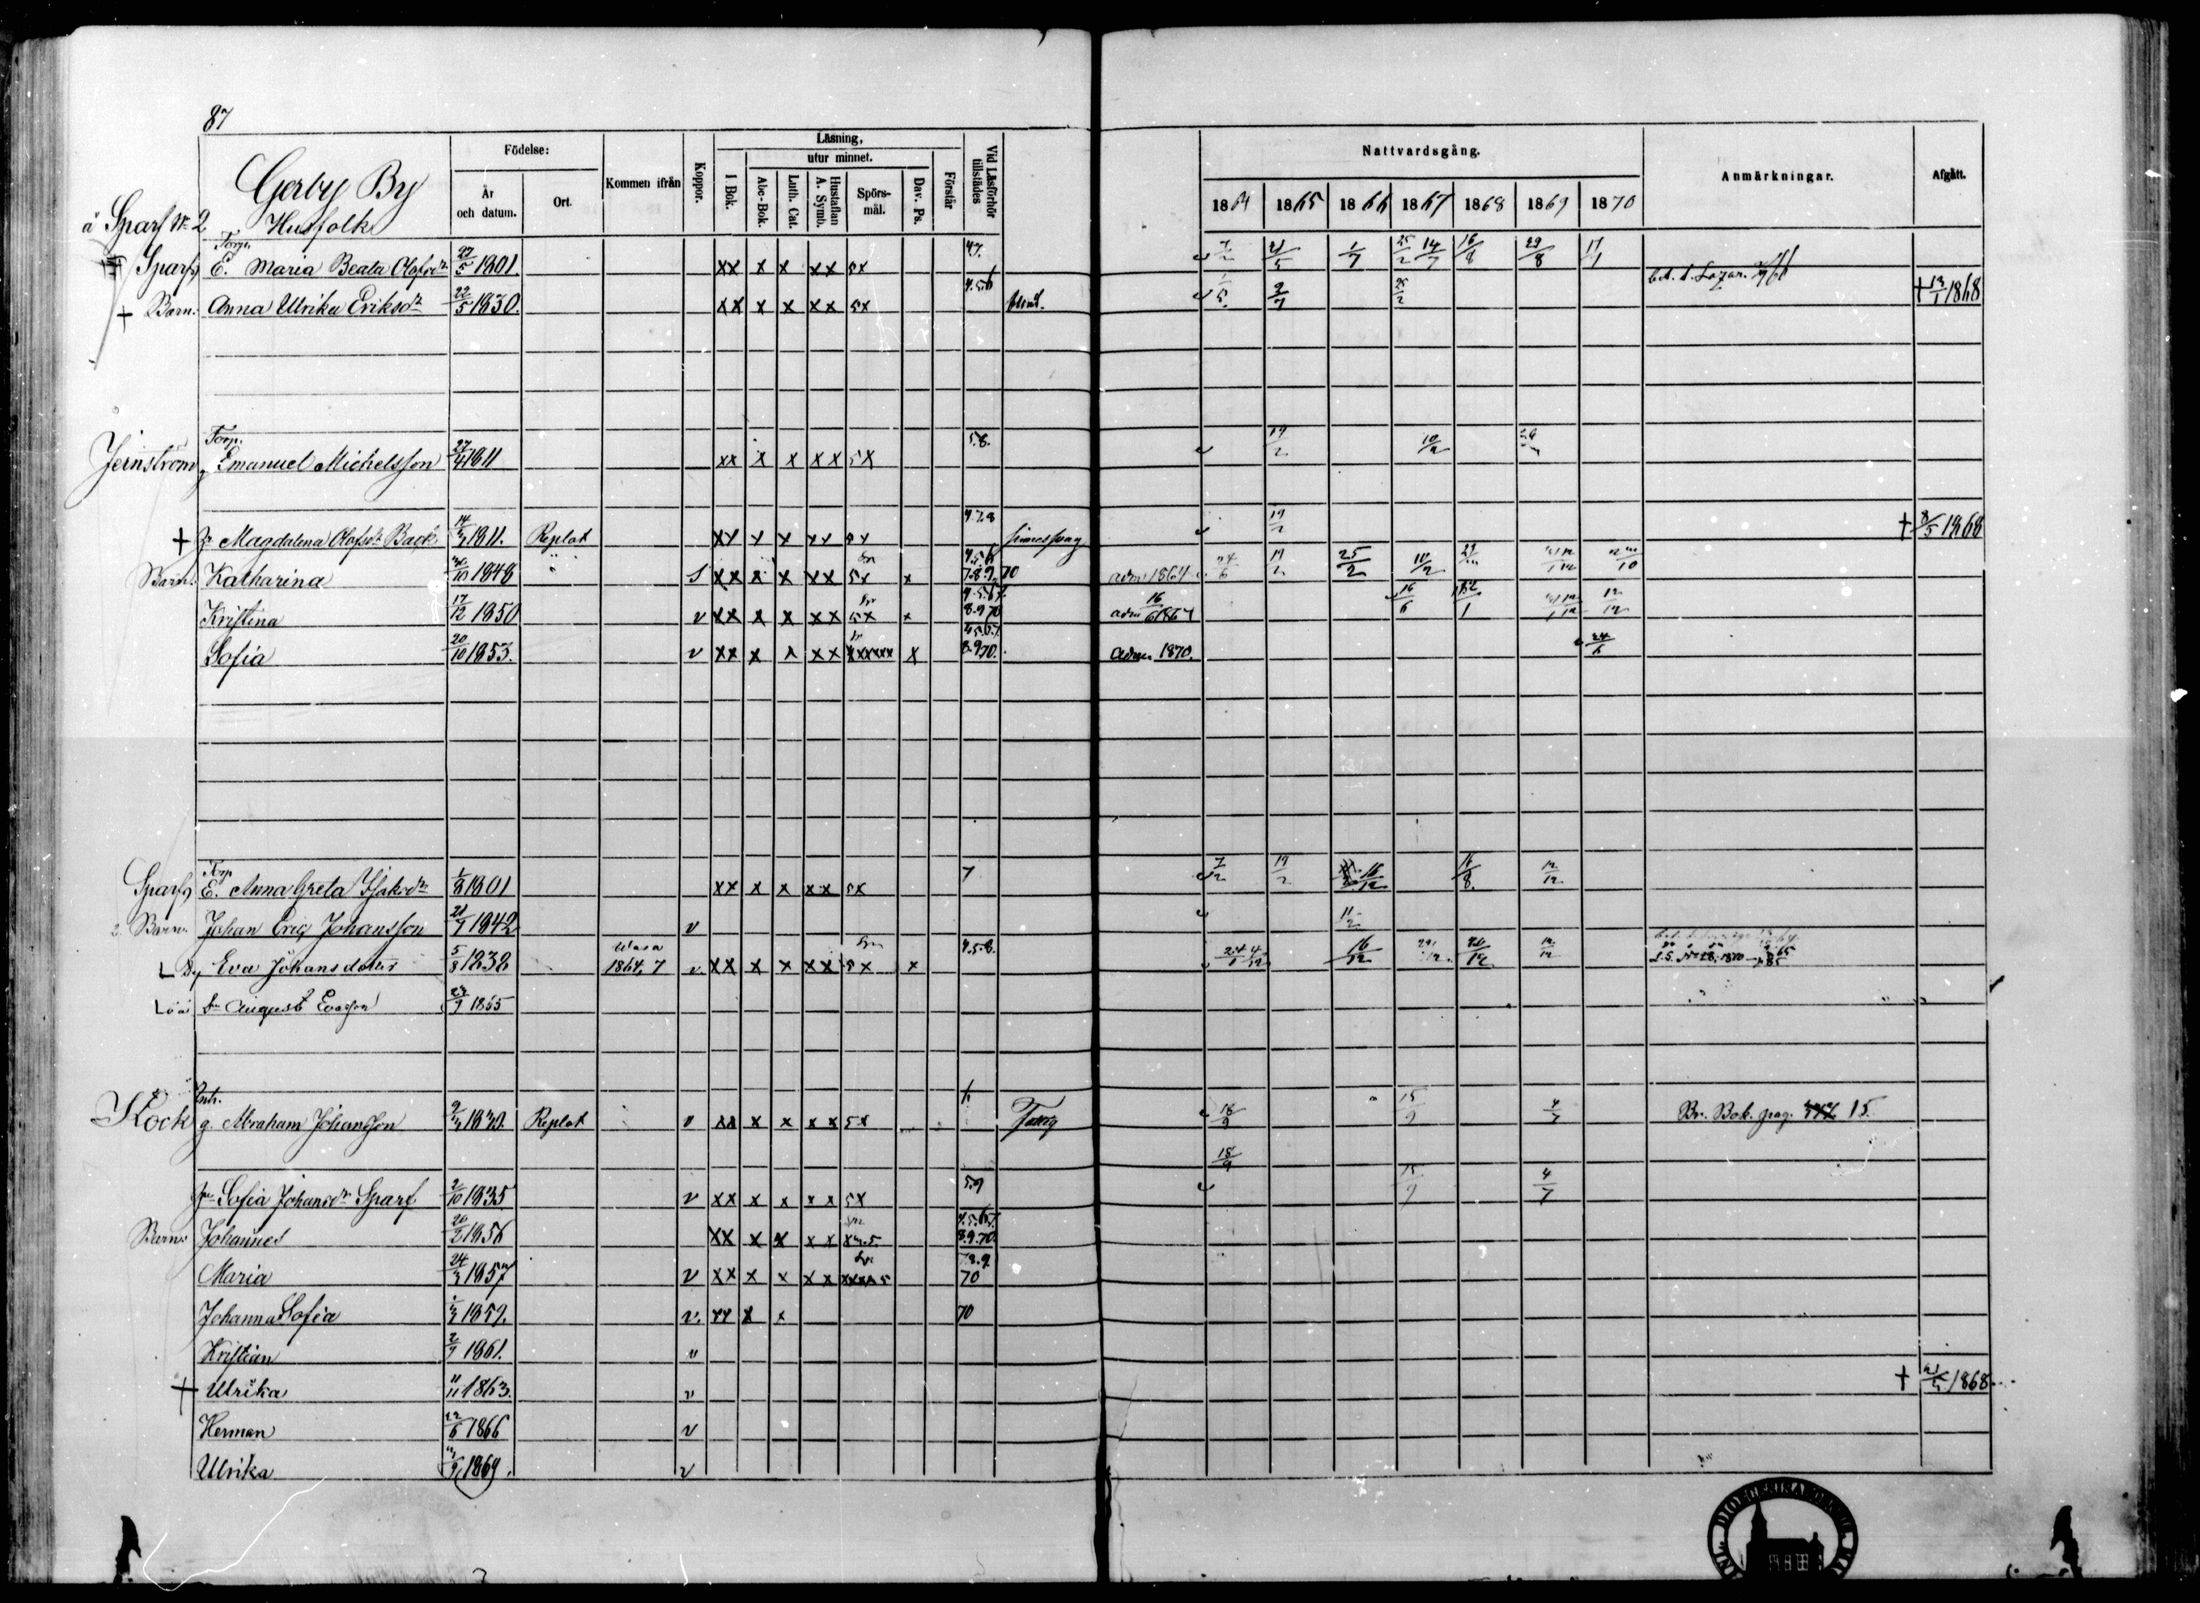 87
Gerby By
å Sparf № 2 Husfolk
Födelse: År och datum. Ort. Kommen ifrån Koppor. Läsning, I Bok. utur minnet. Abc-Bok. Luth. Cat. Hustaflan A. Symb. Spörsmål. Dav. Ps. Förstår Vid Läsförhör tillstädes
Nattvardsgång. 1864 1865 1866 1867 1868 1869 1870 Anmärkningar. Afgått.
Torp.
Sparf E. Maria Beata Olofsdr 27/5 1801. xx x x xx 5x 4.7. 7/2 21/5 1/7 25/2 14/7 16/8 29/8
+ Barn. Anna Ulrika Eriksdr 22/5 1830. xx x x xx 5x 4.5.6 blind. 1/5 2/7 25/2 † 13/1 1868
Torp.
Jernström Emanuel Michelsson 27/4 1811 xx x x xx 5x 5.8. 19/2 10/2
+ Magdalena Olofsdr Back 1811. Replot xx x x xx 5x 4.7.8 19/2 † 8/5 1868
Barn. Katharina 10 1848 " S xx x x xx 5x x 4.5.6 7.8.9 70 adm 1864 24/6 19/2 25/2 10/2
Kristina 17/12 1850 v xx x x xx 5x x 8.9.70 adm 16/6 1867 16/6 12/12
Sofia 20/10 1853. v xx x x xx xxxxxx x 8.9.70. adm 1870. 24/6
Torp
Sparf E. Anna Greta 1/8 1801 xx x x xx 5x 7 7/2 19/2 16/12 16/8 12/12
2. Barn. Johan Eric Johansson 21/7 1842 v 11/2
Eva Johansdotter 5/8 1832 Wasa 1864, 7 v. xx x x xx 5x x 4.5.8. 16/12 12/12
August Evasson 23/9 1855
Inh.
Kock g. Abraham Johansson 1830. Replot v xx x x xx 5x 6 Fattig 18/9 15/9 4/7 Br. Bok. pag. 15.
18/9
Sofia Johansdr Sparf 2/10 1835 v xx x x xx 5x 5.9 15/9 4/7
Barn. Johannes 20/2 1856 xx x x x x 8.9.70.
Maria 24/3 1857 v xx x x x x 7.8.9 70
Johanna Sofia 1/3 1859. v. xx x x 70
Kristian 2/7 1861. v
+ Ulrika 11/11 1863. v † 1868
Herman 22/6 1866 v
Ulrika 1869. v